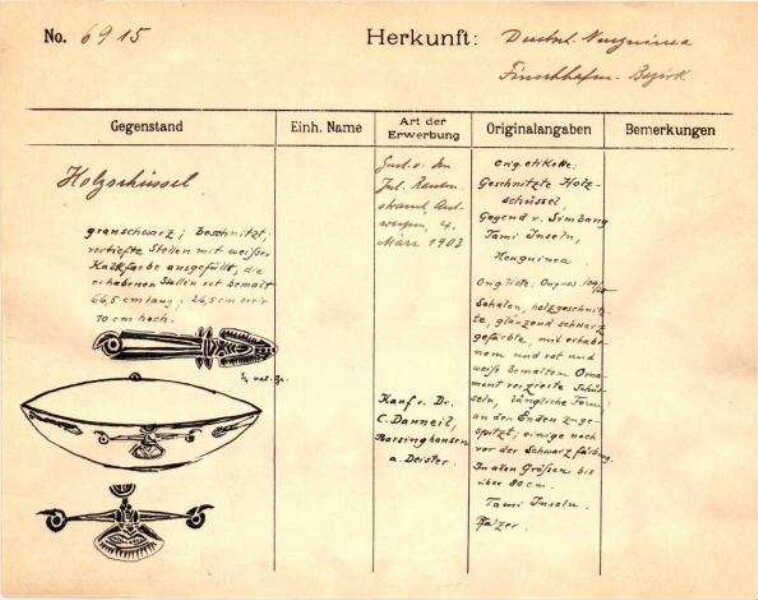 No. 6915
Herkunft: Deutschl. Neuguinea
Finschhafen-Bezirk
Gegenstand
Einh. Name
Art der
Erwerbung
Originalangaben
Bemerkungen
Holzschüssel
grauschwarz; beschnitzt;
vertiefte Stellen mit weißer
Kalkfarbe ausgefüllt, die
erhabenen Stellen rot bemalt
66,5 cm lang; 26,5 cm breit
10 cm hoch.
½ nat. Gr.
werpen, 4.
März 1903
Kauf v. Dr.
C. Danneil,
Barsinghausen
a. Deister.
Orig. etikette:
Geschnitzte Holz-
schüssel,
Gegend v. Simbang
Tami Inseln,
Neuguinea.
Orig liste:
Schalen, holzgeschnitz-
te, glänzend schwarz
gefärbte, mit erhabe-
nem und rot und
weiß bemaltem Orna-
ment verzierte Schüs-
seln, längliche Form
an den Enden zuge-
spitzt; einige noch
vor der Schwarzfärbung.
In allen Größen bis
über 80 cm.
Tami Inseln.